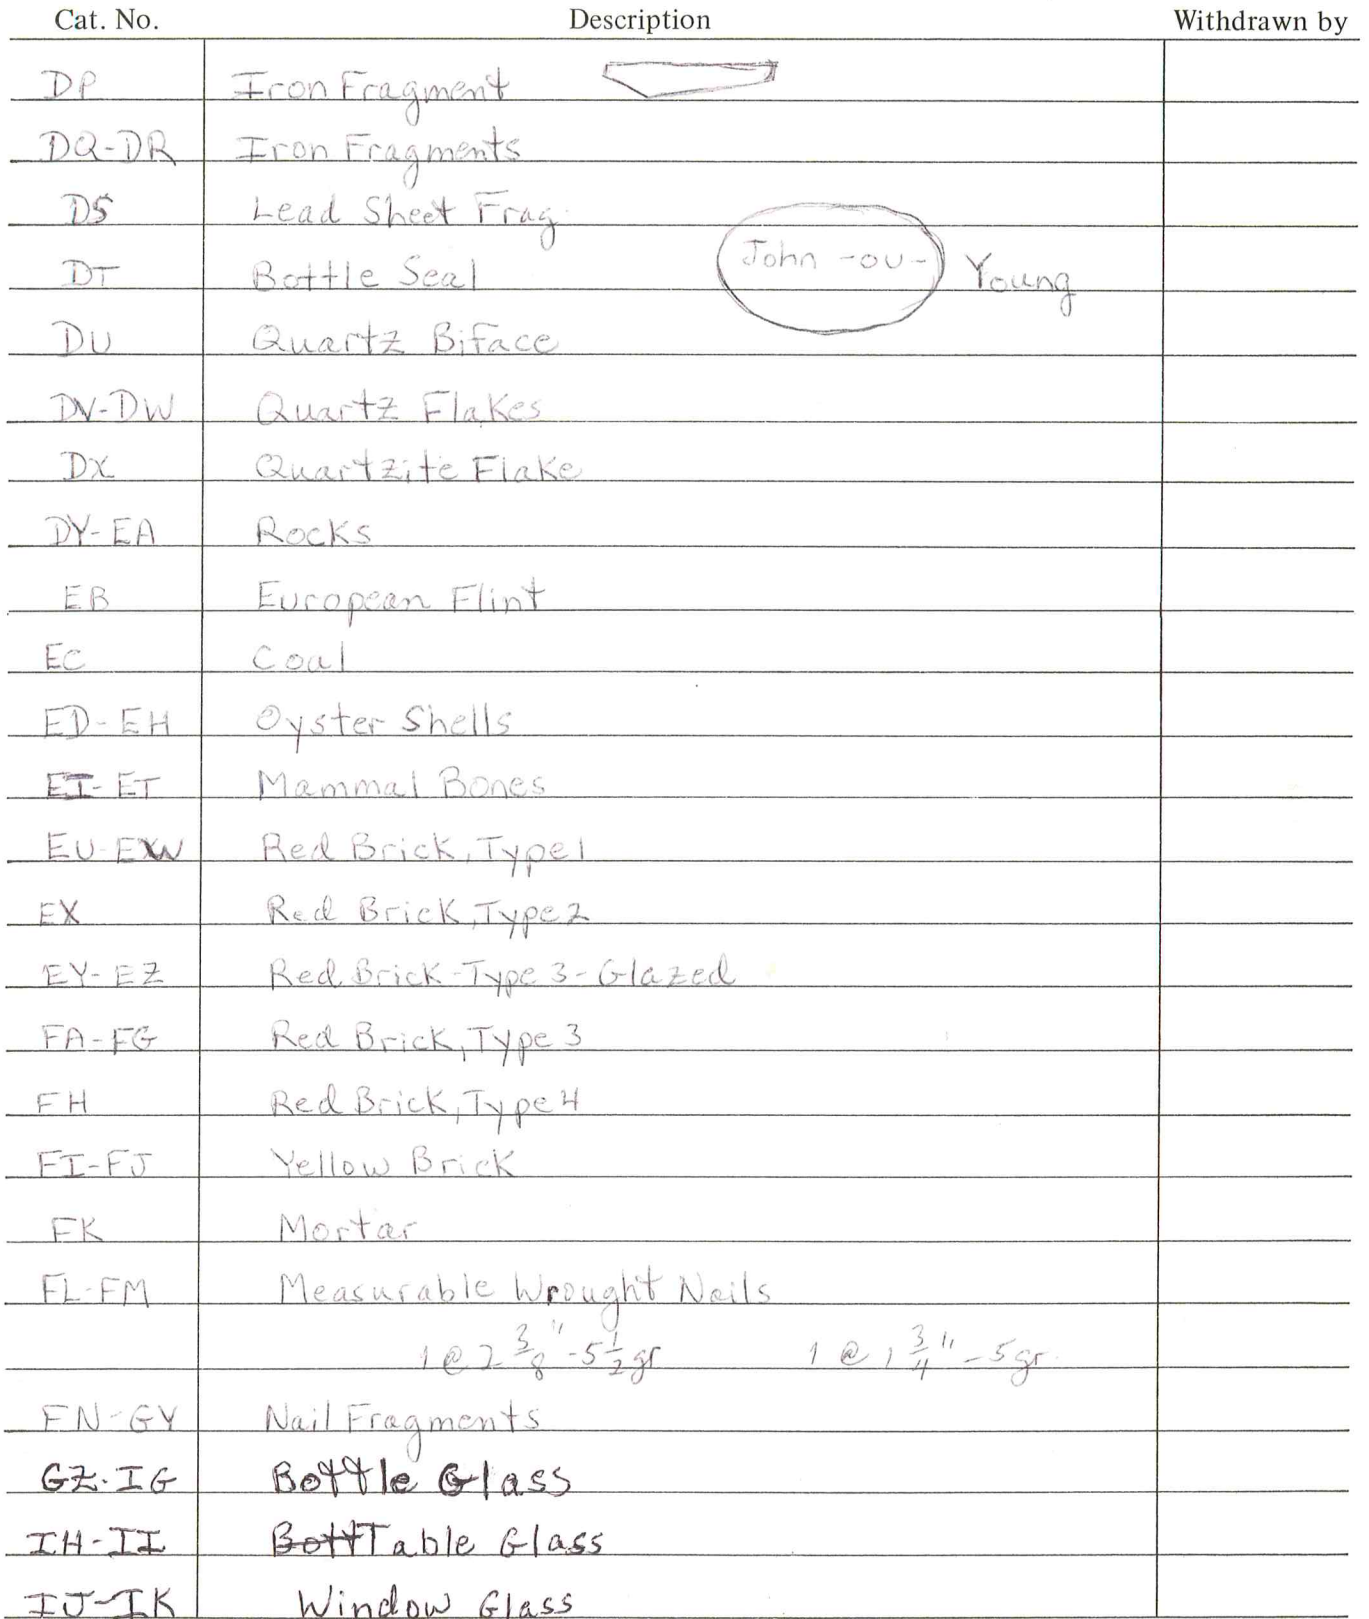 Cat. No. Description Withdrawn by
DP Iron Fragment
DQ-DR Iron Fragments
DS Lead Sheet Frag.
DT Bottle Seal John -ou- Young
DU Quartz Biface
DV-DW Quartz Flakes
DX Quartzite Flake
DY-EA Rocks
EB European Flint
EC Coal
ED-EH Oyster Shells
EI-ET Mammal Bones
EU-EW Red Brick, Type 1
EX Red Brick, Type 2
EY-EZ Red Brick-Type 3-Glazed
FA-FG Red Brick, Type 3
FH Red Brick, Type 4
FI-FJ Yellow Brick
FK Mortar
FL-FM Measurable Wrought Nails
1 @ 2 3/8" - 5 1/2 gr 1 @ 1 3/4" - 5 gr.
FN-GY Nail Fragments
GZ-IG Bottle Glass
IH-II Bott Table Glass
IJ-IK Window Glass